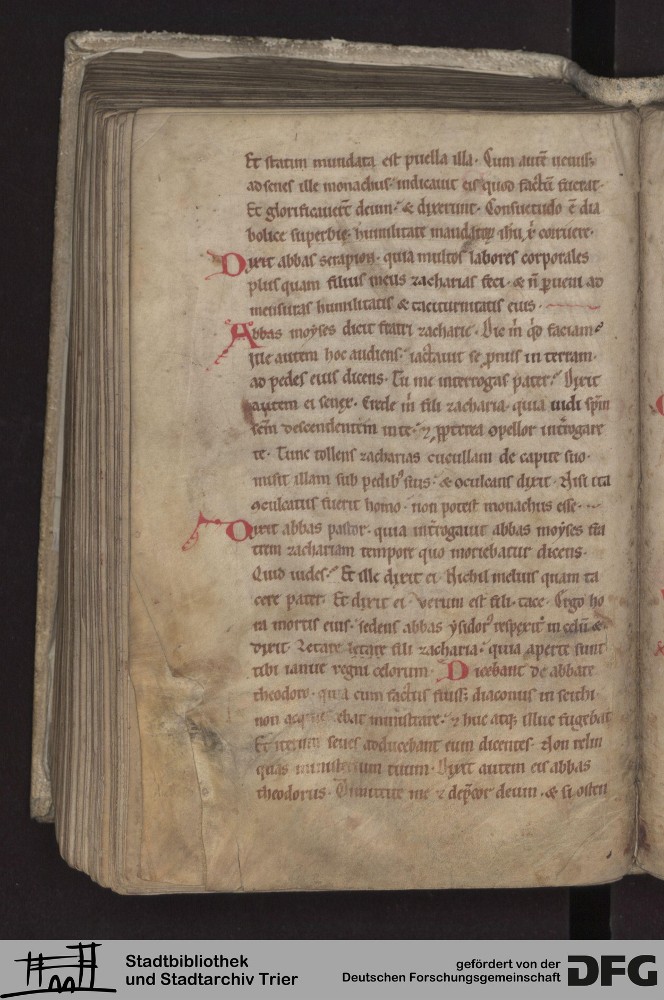 Et statim mundata est puella illa. Cum autē uenisꝫ
ad senes ille monachus. indicauit eis quod factū fuerat.
Et glorificauerūt deum. & dixerunt. Consuetudo ē dia
bolice superbie. humilitate mandatoꝝ ihu xp̄i corruere.
Dixit abbas serapion. quia multos labores corporales
plus quam filius meus zacharias feci. & n̄ p̱ueni ad
mensuras humilitatis & taciturnitatis eius.
Abbas moyses dicit fratri zacharie. Dic m̄ qd̄ faciam?
Ille autem hoc audiens. iactauit se p̱nus in terram.
ad pedes eius dicens. Tu me interrogas pater? Dixit
autem ei senex. Crede m̄ fili zacharia. quia uidi sp̄m
sc̄m descendentem in te. ⁊ ꝓpterea cōpellor int̄rogare
te. Tunc tollens zacharias cucullam de capite suo.
misit illam sub pedibꝰ suis. & cōculcans dixit. Nisi ita
ꝯculcatus fuerit homo. non potest monachus esse.
Dixit abbas pastor. quia int̄rogauit abbas moyses fra
trem zachariam tempore quo moriebatur dicens.
Quid uides? Et ille dixit ei. Nichil melius quam ta
cere pater. Et dixit ei. verum est fili. tace. Ergo ho
ra mortis eius. sedens abbas ysidorꝰ respexit in celū &
dixit. Letare letare fili zacharia. quia aperte sunt
tibi ianue regni celorum. Dicebant de abbate
theodoro. quia cum factus fuisꝫ diaconus in scithi.
non acquiescebat ministrare. ⁊ huc atqꝫ illuc fugebat
Et iterum senes adducebant eum dicentes. Non relin
quas ministerium tuum. Dixit autem eis abbas
theodorus. Dimittite me ⁊ dep̄cor deum. & si osten
Stadtbibliothek
und Stadtarchiv Trier
gefördert von der
Deutschen Forschungsgemeinschaft
DFG